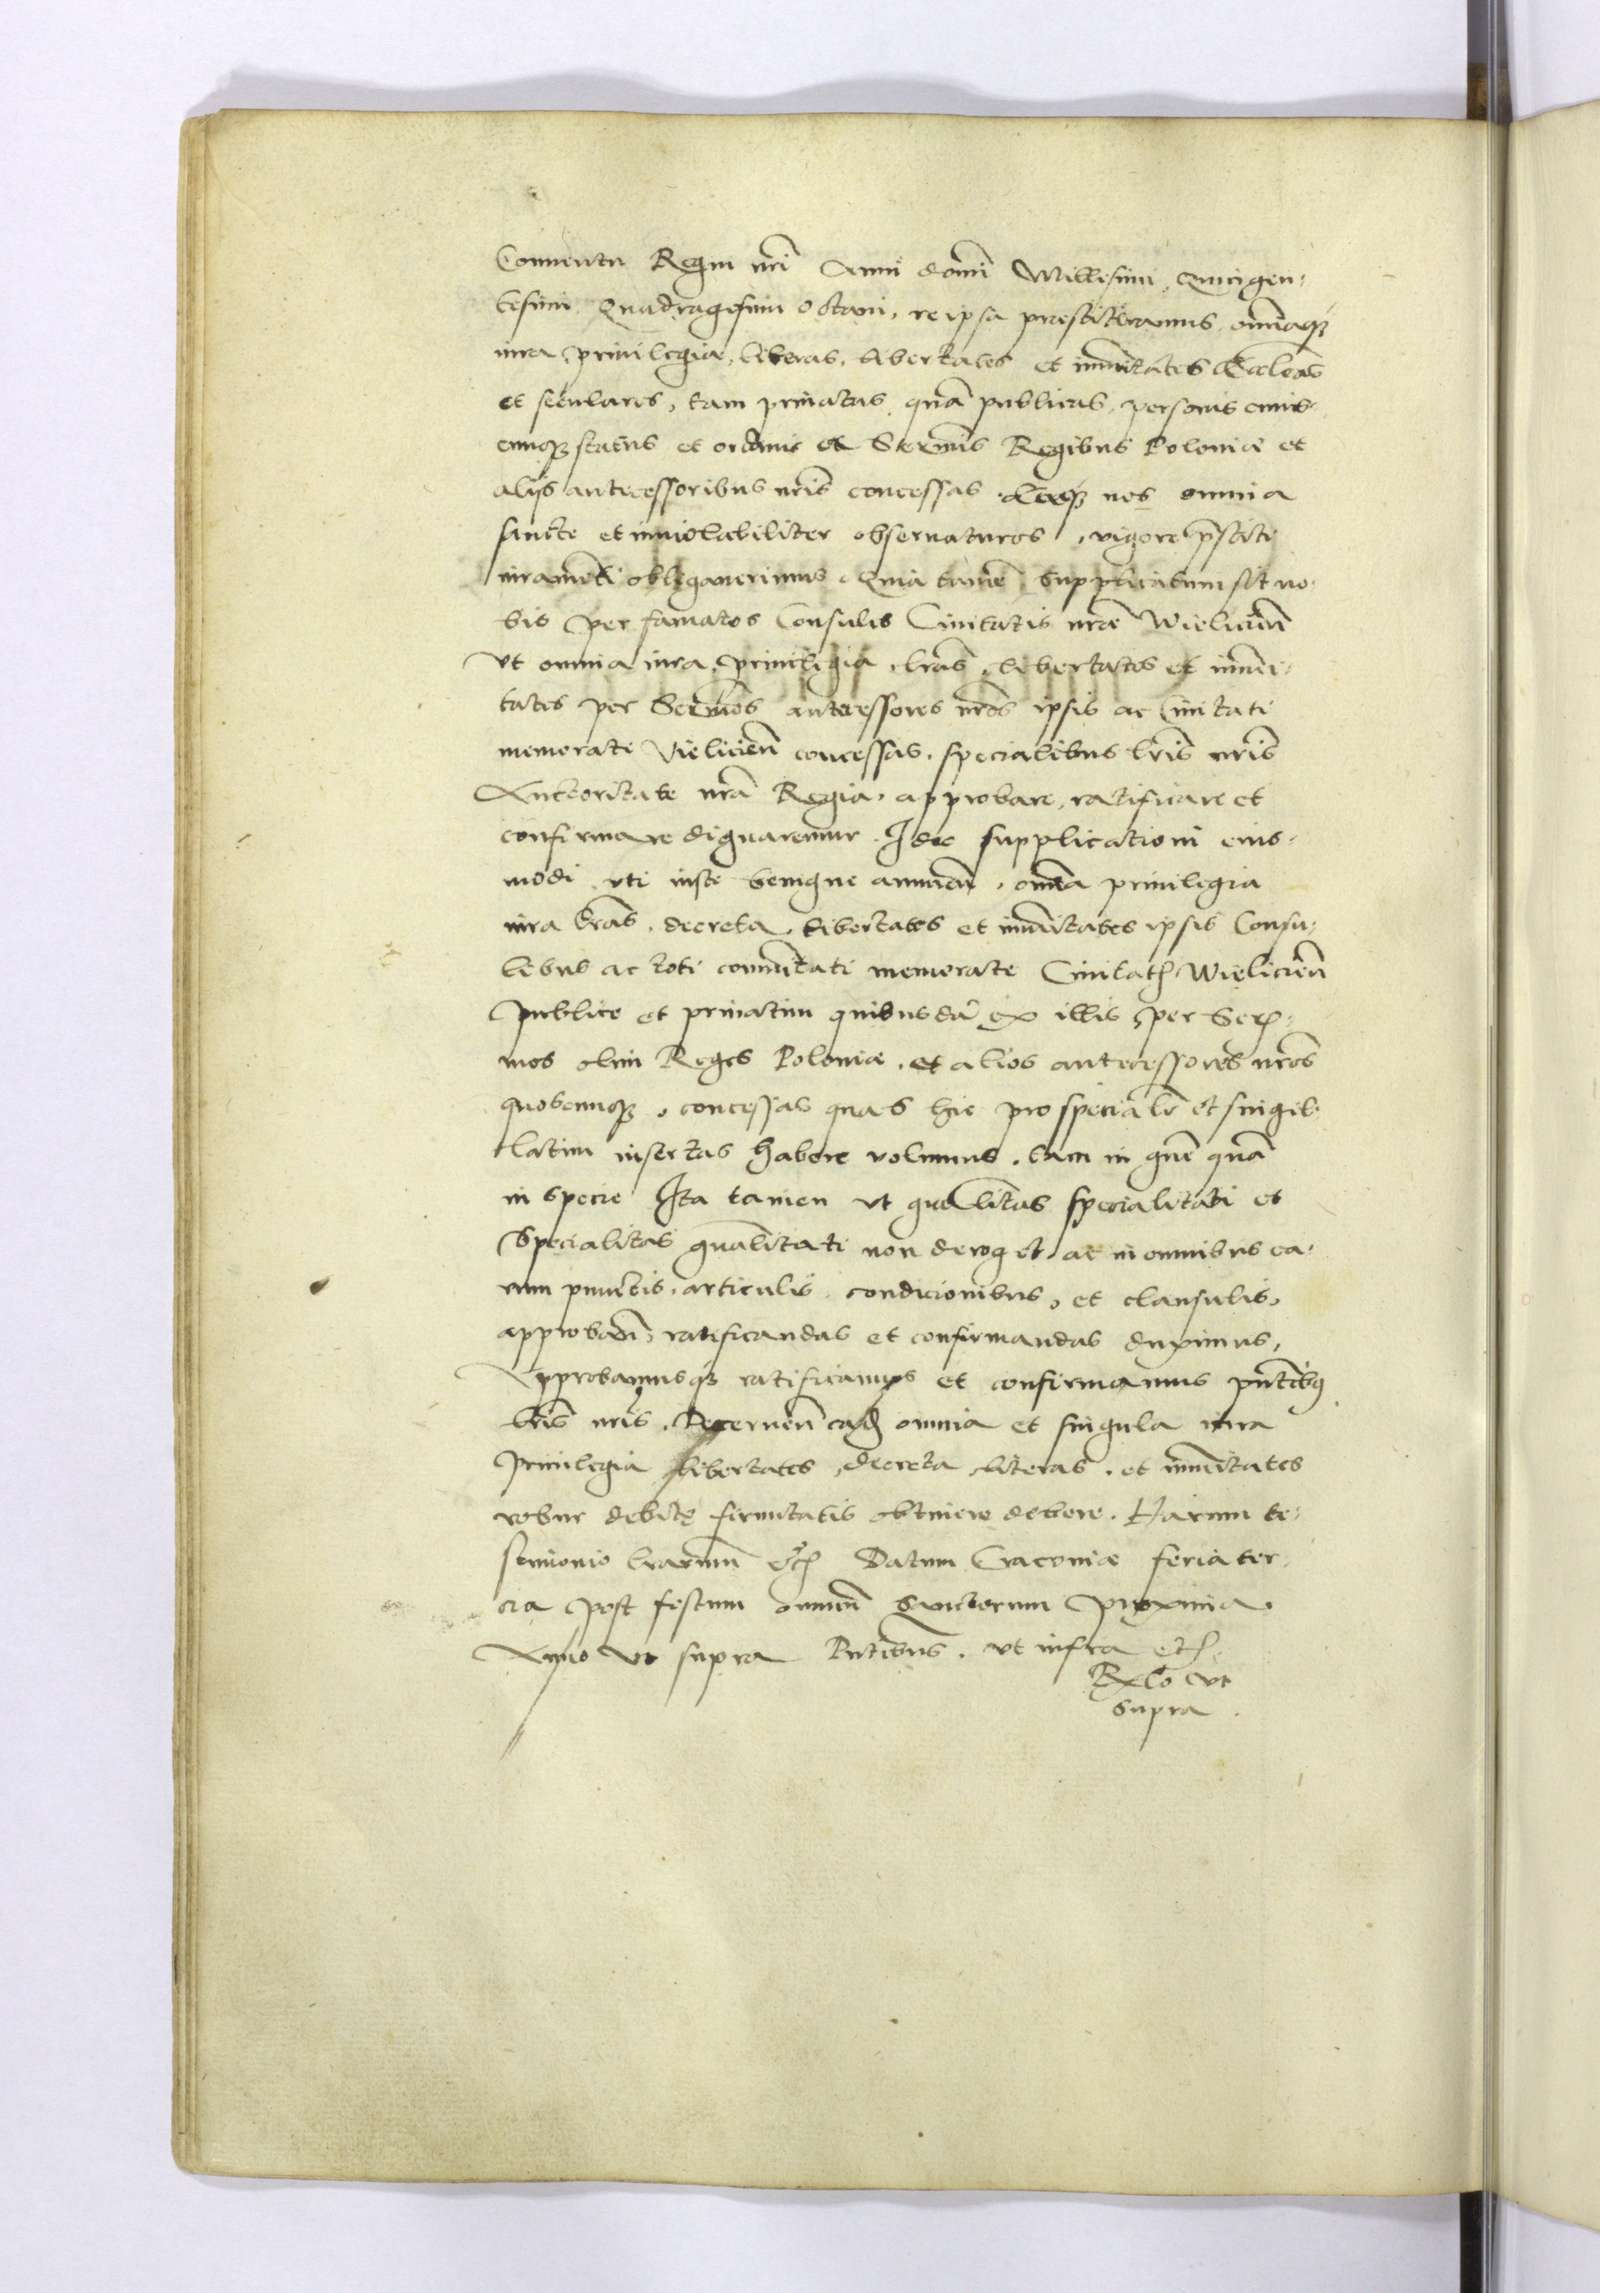 Conuentu Regni nrī Anni domī Millesimi Quingen-
tesimi Quadragesimi octaui, re ipsa praestiteramus, omīaqȝ
iura, priuilegia, literas, libertates et imūitates Eccleās
et seculares, tam priuatas quā publicas, personis cuius-
cunqȝ status et ordinis a Serēmis Regibus Poloniæ et
alijs antecessoribus nrīs concessas eaqȝ nos omnia
sancte et inuiolabiliter obseruaturos, vigore p̄stiti
iuramēti obligauerimus. Quia tamē supplicatum sit no-
bis per famatos Consules Ciuitatis nræ Wieliciēn
Vt omnia iura, priuilegia, lrās, libertates et imūi-
tates per Serēmos antecessores nrōs ipsis ac Ciuitati
memorate Vieliciēn concessas, specialibus lrīs nrīs
Auctoritate nrā Regia, approbare, ratificare et
confirmare dignaremur. Ideo supplicationi eius-
modi vti iuste benigne annuēn, omīa priuilegia
iura lrās, decreta, libertates et imūitates ipsis Consu-
libus ac toti comūitati memorate Ciuitatis Wieliciēn
publice et priuatim quibusdā ex illis, per Serēn-
mos olim Reges Poloniæ, et alios antecessores nrōs
quoscunqȝ, concessas quas hic pro specialr̄ et singil-
latim insertas habere volumus, tam in gn̄e quā
in specie Ita tamen vt gnālitas specialitati et
Specialitas gnālitati non deroget, ac in omnibus ea-
rum punctis, articulis, condicionibus, et clausulis,
approbān, ratificandas et confirmandas duximus,
Approbamusqȝ ratificamus et confirmamus pn̄tibus
lrīs nrīs. Decernēn eadem omnia et singula iura
Priuilegia libertates, decreta, literas, et imūitates
robur debitę firmitatis obtinere debere. Harum te-
stimonio lrarum etc̄ Datum Cracouiæ feria ter-
cia post festum omniū Sanctorum proxima.
Anno vt supra Pn̄tibus, vt infra etc̄
Rlō vt
supra.